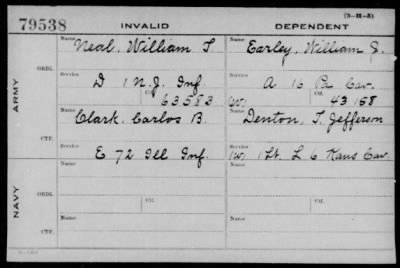 79538
INVALID
DEPENDENT
(3—111—5)
ARMY
ORIG.
Name Neal, William T.
Name Earley, William J.
Service D 1 N.J. Inf.
Service A 16 Pa Cav.
Ctf. 63583
(W) Ctf. 43158
CTF.
Name Clark, Carlos B.
Name Denton, T. Jefferson
Service E 72 Ill Inf.
Service (W) 1 Lt. L 6 Kans Cav
NAVY
ORIG.
Name
Name
Service
Service
Ctf.
Ctf.
CTF.
Name
Name